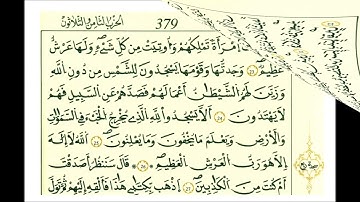 الحزب الثامن والثلاثون 379
امْرَأَةً تَمْلِكُهُمْ وَأُوتِيَتْ مِن كُلِّ شَيْءٍ وَلَهَا عَرْشٌ
عَظِيمٌ ٢٣ وَجَدتُّهَا وَقَوْمَهَا يَسْجُدُونَ لِلشَّمْسِ مِن دُونِ اللَّهِ
وَزَيَّنَ لَهُمُ الشَّيْطَانُ أَعْمَالَهُمْ فَصَدَّهُمْ عَنِ السَّبِيلِ فَهُمْ
لَا يَهْتَدُونَ ٢٤ أَلَّا يَسْجُدُوا لِلَّهِ الَّذِي يُخْرِجُ الْخَبْءَ فِي السَّمَاوَاتِ
وَالْأَرْضِ وَيَعْلَمُ مَا تُخْفُونَ وَمَا تُعْلِنُونَ ٢٥ اللَّهُ لَا إِلَٰهَ
إِلَّا هُوَ رَبُّ الْعَرْشِ الْعَظِيمِ ٢٦ قَالَ سَنَنظُرُ أَصَدَقْتَ
أَمْ كُنتَ مِنَ الْكَاذِبِينَ ٢٧ اذْهَب بِّكِتَابِي هَٰذَا فَأَلْقِهْ إِلَيْهِمْ ثُمَّ تَوَلَّ